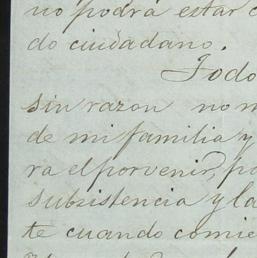 no podrá estar
do ciudadano.
Todo
sin razon no m
de mi familia y
ra el porvenir, po
subsistencia y la
te cuando comie